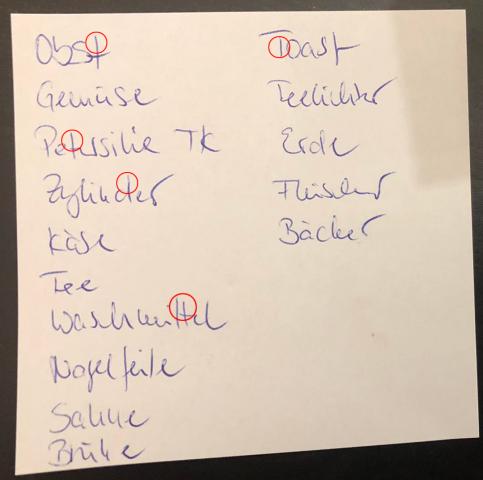 Obst
Gemüse
Petersilie TK
Zylinder
Käse
Tee
Waschmittel
Nagelfeile
Sahne
Brühe
Toast
Teelichter
Erde
Fleischer
Bäcker